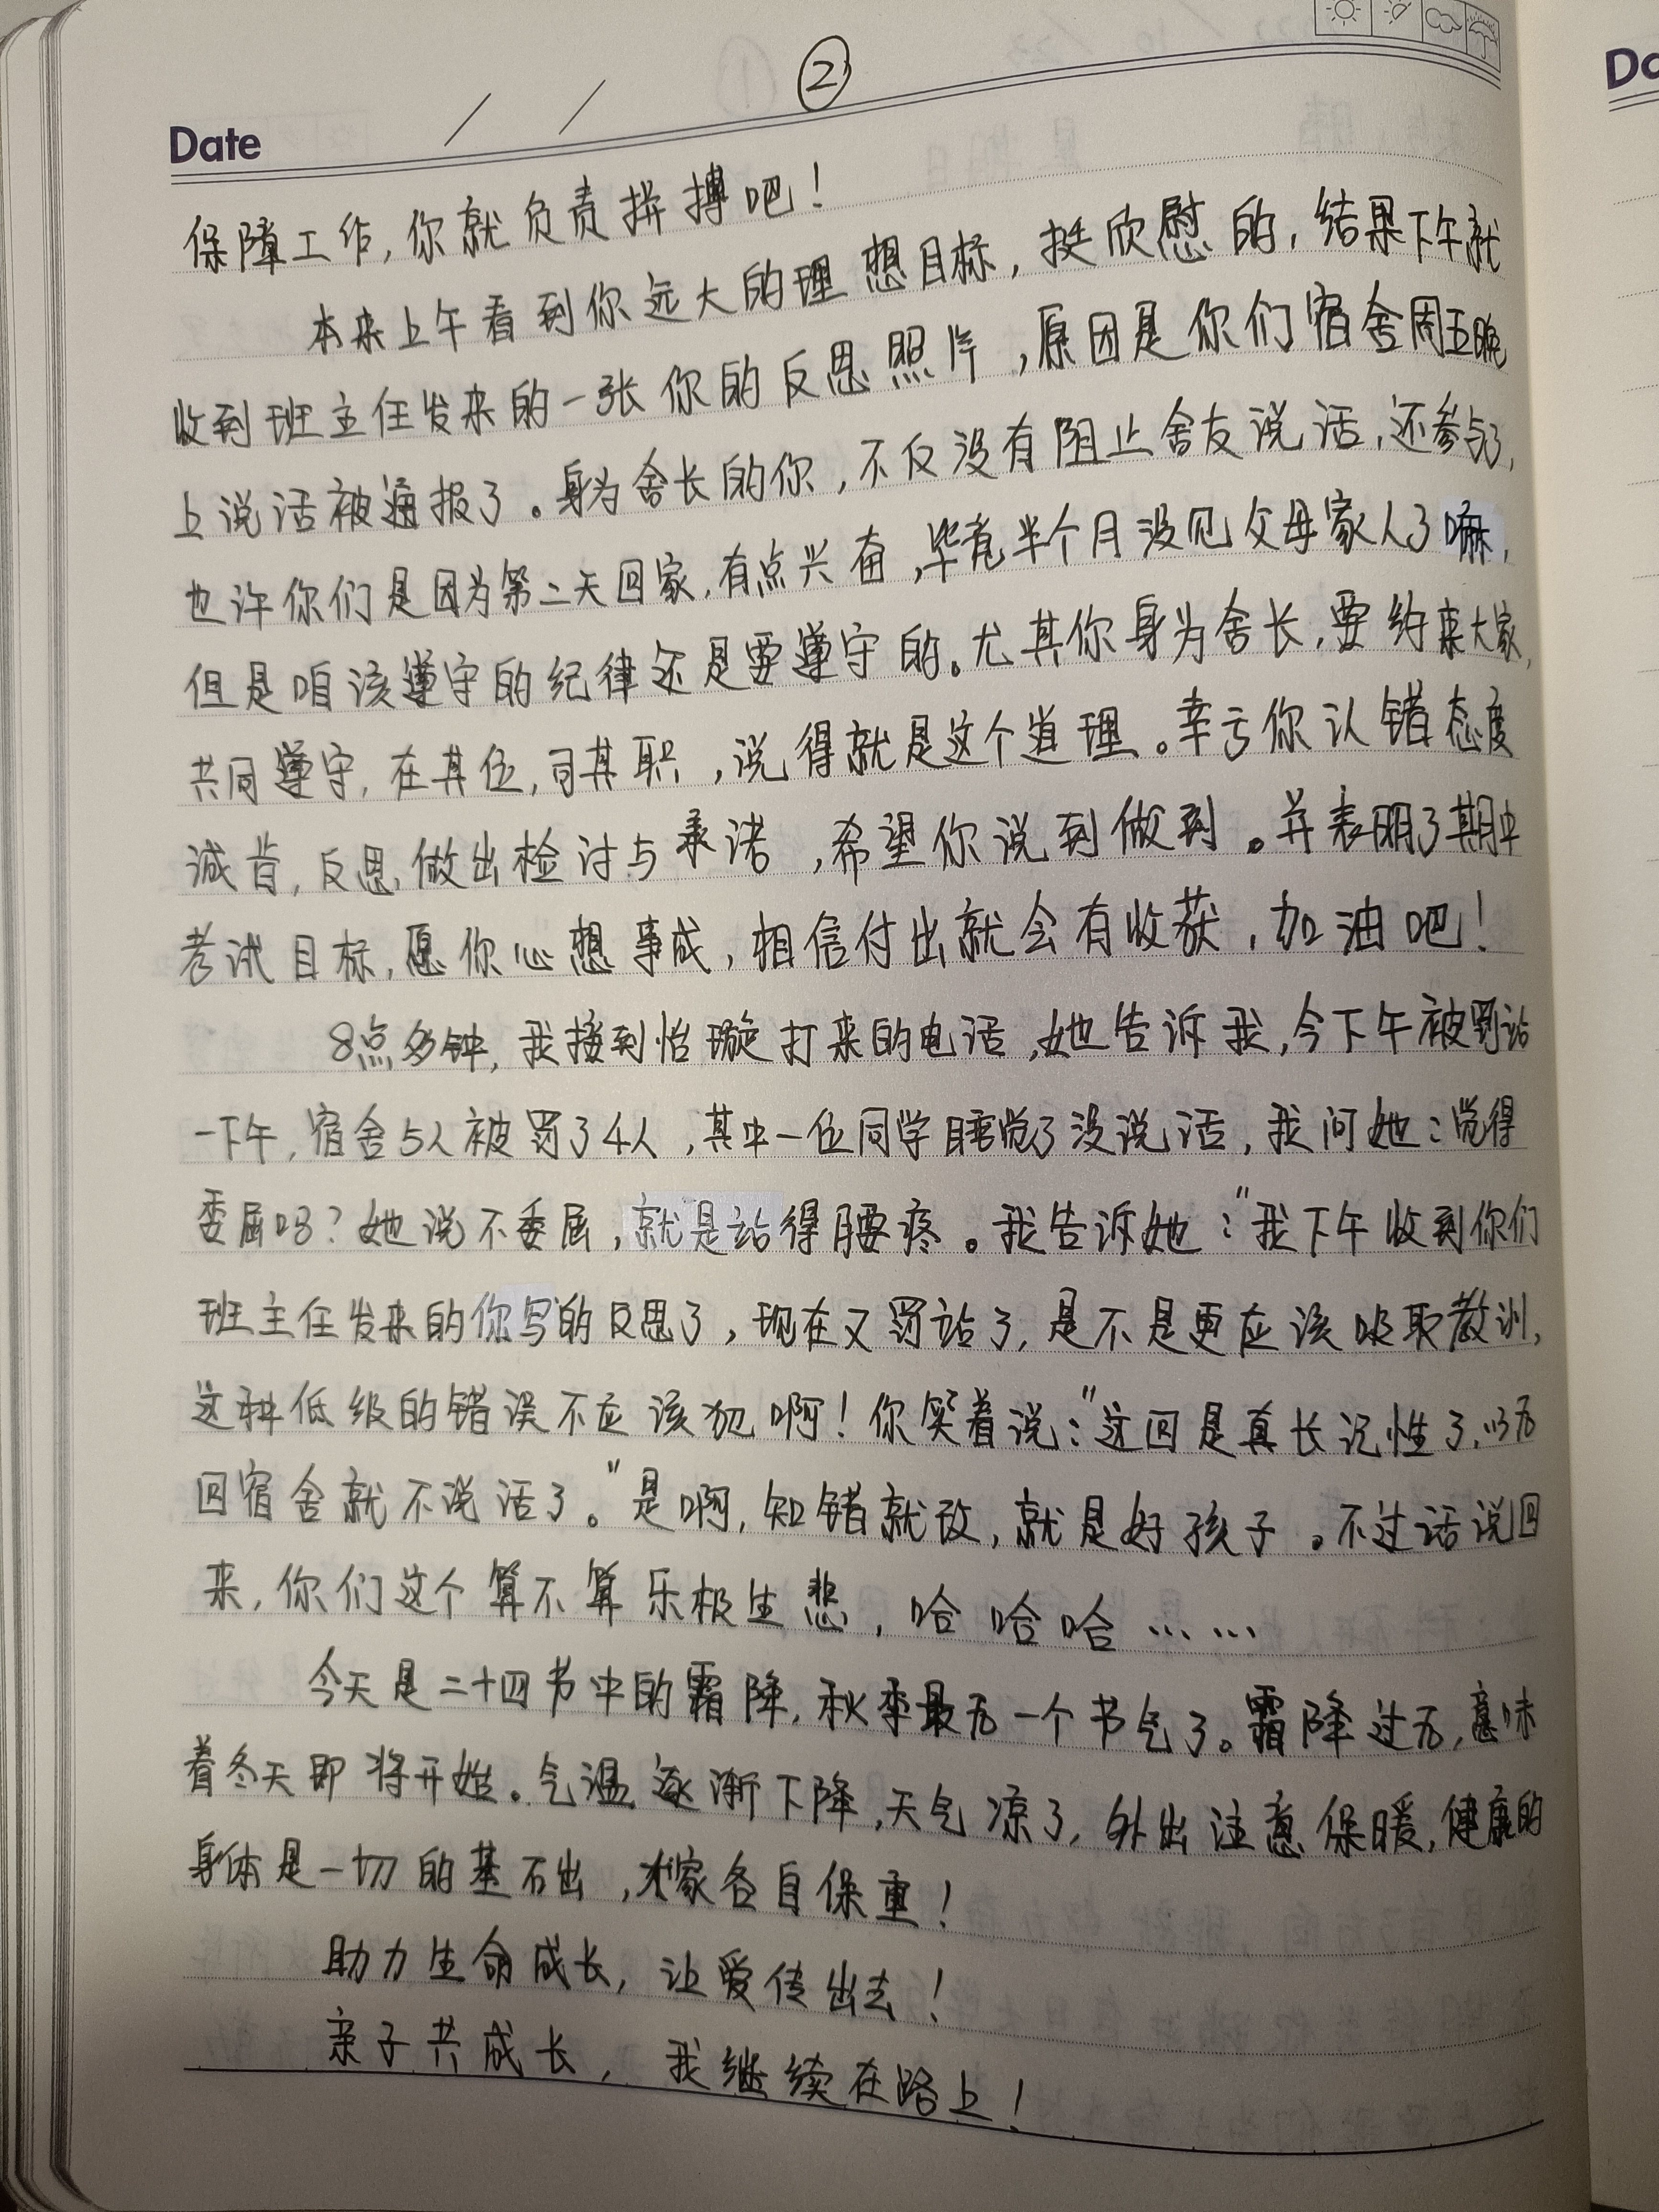 ②
Date / /
保障工作,你就负责拼搏吧!
本来上午看到你远大的理想目标,挺欣慰的,结果下午就
收到班主任发来的一张你的反思照片,原因是你们宿舍周五晚
上说话被通报了。身为舍长的你,不仅没有阻止舍友说话,还参与了,
也许你们是因为第二天回家,有点兴奋,毕竟半个月没见父母家人了嘛,
但是咱该遵守的纪律还是要遵守的。尤其你身为舍长,要约束大家,
共同遵守,在其位,司其职,说得就是这个道理。幸亏你认错态度
诚肯,反思,做出检讨与承诺,希望你说到做到。并表明了期中
考试目标,愿你心想事成,相信付出就会有收获,加油吧!
8点多钟,我接到怡璇打来的电话,她告诉我,今下午被罚站
一下午,宿舍5人被罚了4人,其中一位同学睡觉了没说话,我问她:觉得
委屈吗?她说不委屈,就是站得腰疼。我告诉她:"我下午收到你们
班主任发来的你写的反思了,现在又罚站了,是不是更应该吸取教训,
这种低级的错误不应该犯啊!你笑着说:"这回是真长记性了,以后
回宿舍就不说话了。"是啊,知错就改,就是好孩子。不过话说回
来,你们这个算不算乐极生悲,哈哈哈……
今天是二十四节中的霜降,秋季最后一个节气了。霜降过后,意味
着冬天即将开始。气温逐渐下降,天气凉了,外出注意保暖,健康的
身体是一切的基石出,大家各自保重!
助力生命成长,让爱传出去!
亲子共成长,我继续在路上!